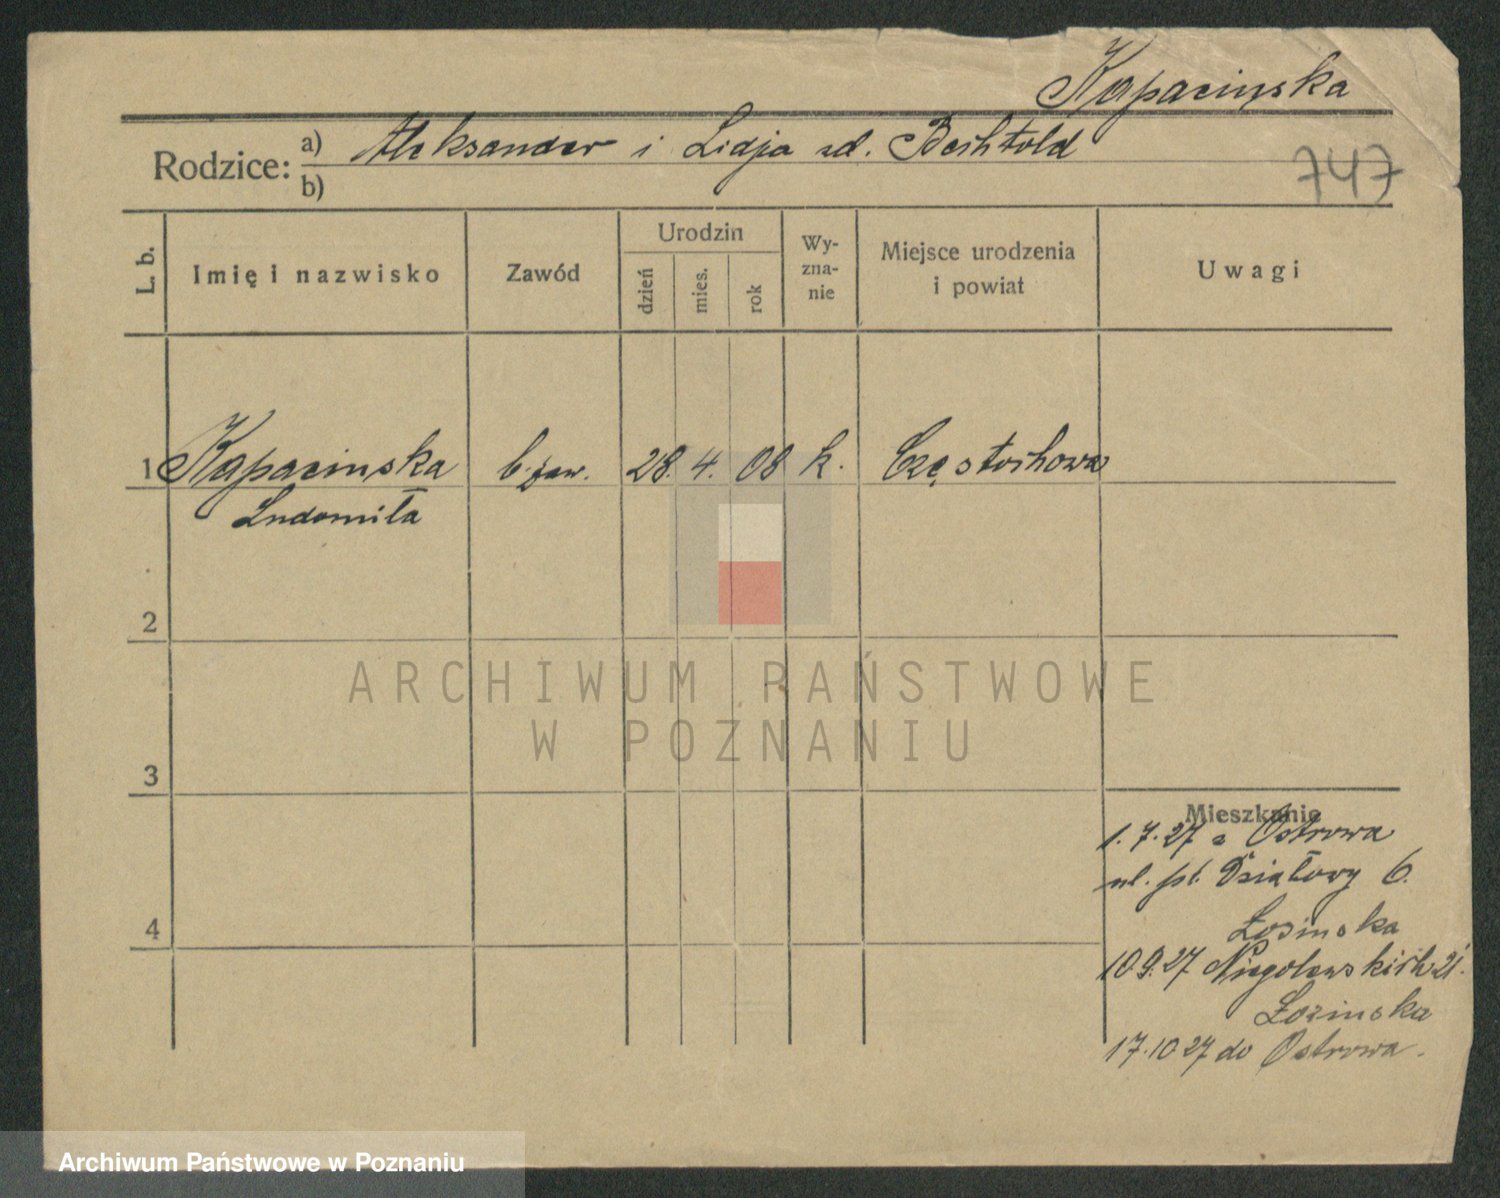 Kapacinska
Rodzice: a) Aleksander i Lidja zd. Bechtold
b)
747
L. b. Imię i nazwisko Zawód Urodzin dzień mies. rok Wyzna-nie Miejsce urodzenia i powiat Uwagi
1 Kapacinska b. zaw. 28. 4. 08 k. Częstochowa
Ludomiła
2
3
4
Mieszkanie
1.7.27 z Ostrowa
ul. pl. Działowy 6.
Łosinska
10.9.27 Niegolewskich 21.
Łozinska
17.10 27 do Ostrowa.
ARCHIWUM PAŃSTWOWE
W POZNANIU
Archiwum Państwowe w Poznaniu